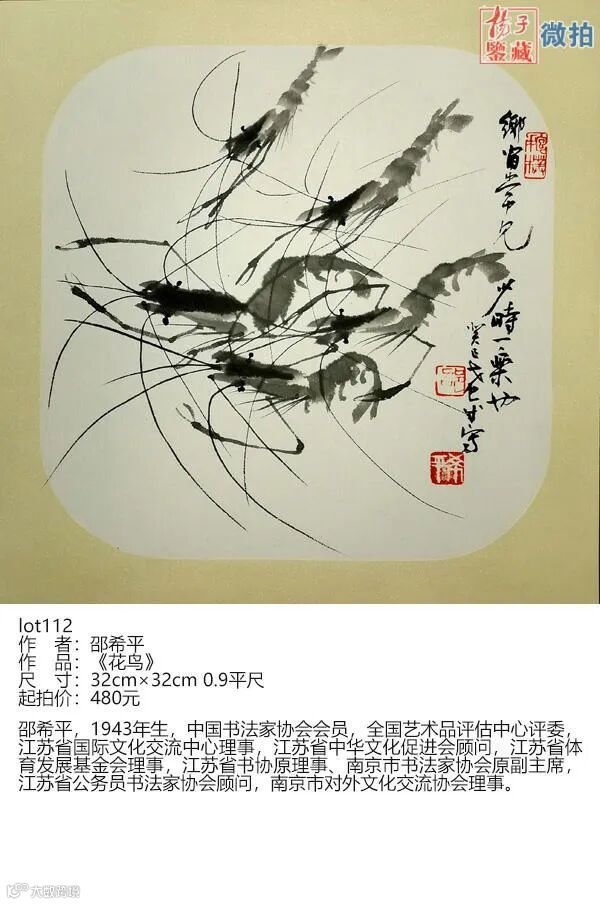 揚子
鑒藏
微拍
鄉習常見
少時一樂也
癸巳
写
希
平
lot112
作 者：邵希平
作 品：《花鸟》
尺 寸：32cm×32cm 0.9平尺
起拍价：480元
邵希平，1943年生，中国书法家协会会员，全国艺术品评估中心评委，
江苏省国际文化交流中心理事，江苏省中华文化促进会顾问，江苏省体
育发展基金会理事，江苏省书协原理事、南京市书法家协会原副主席，
江苏省公务员书法家协会顾问，南京市对外文化交流协会理事。